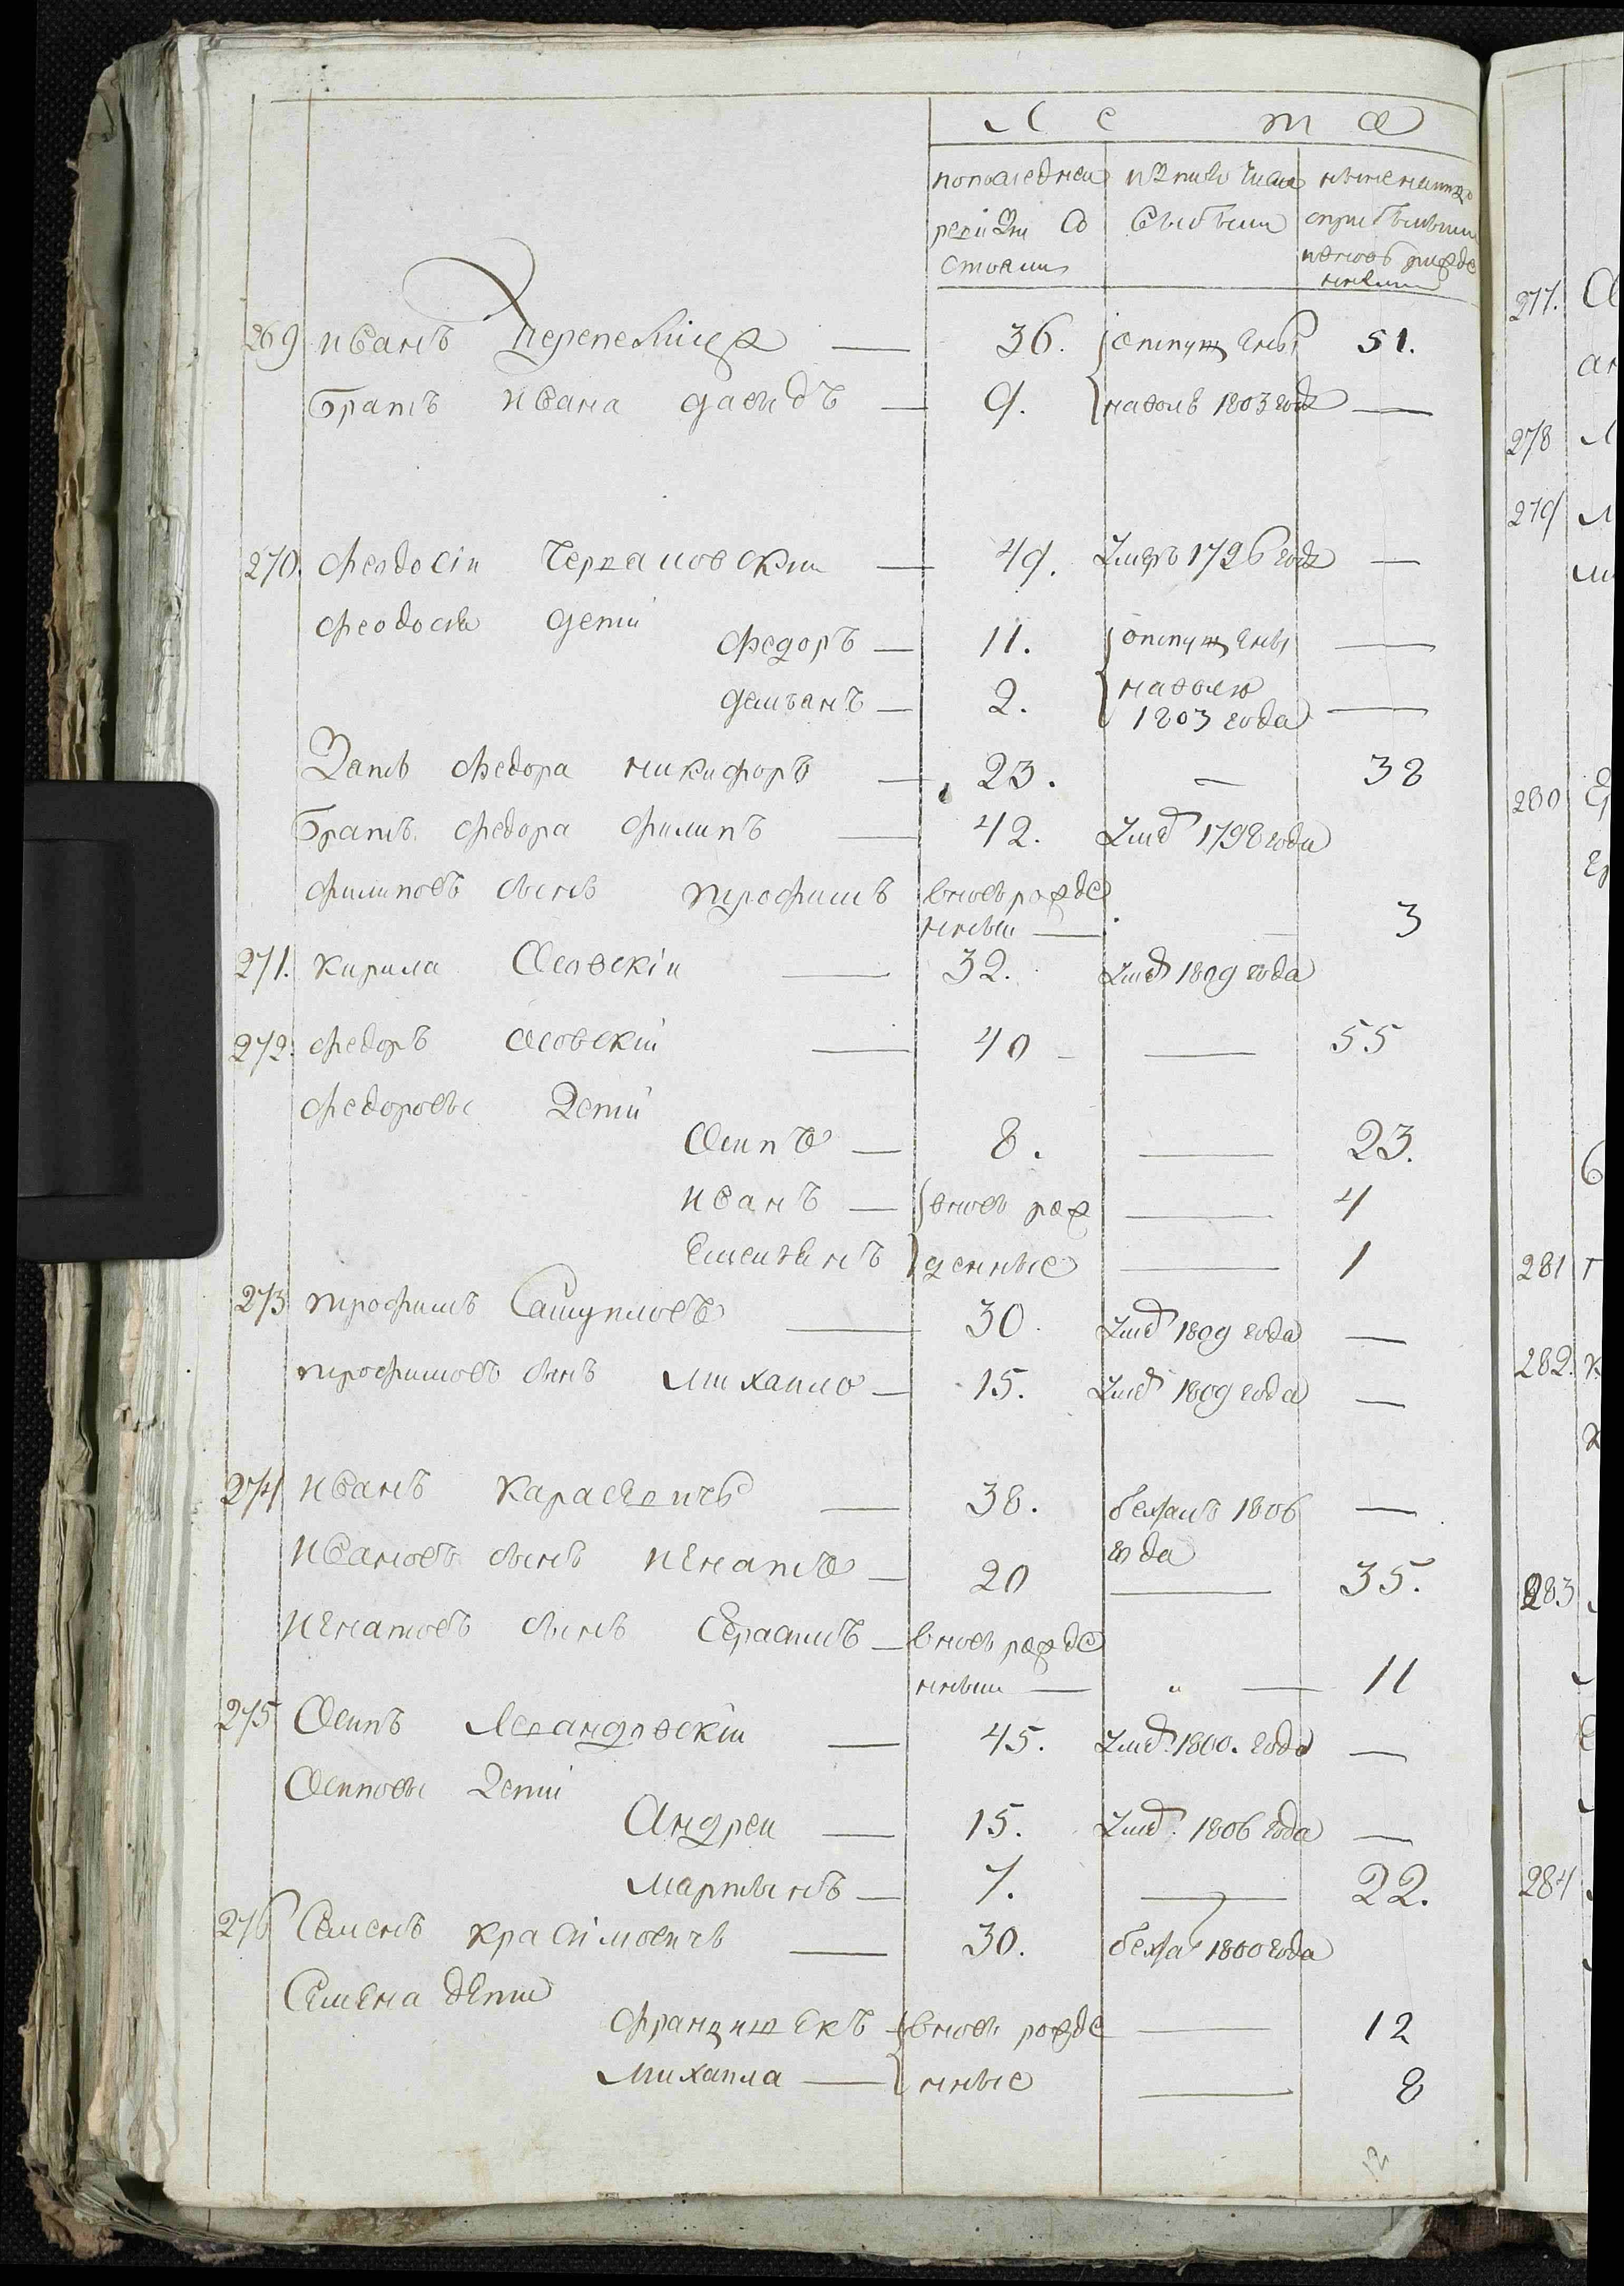 Лета
попоследнеи ревизіи состояли
изтого числа выбыли
ныне налицо сприбылыми вновь рожденными
269 иванъ перепелица — 36. отпущены 51.
братъ ивана давидъ — 9. наволь 1803 года —
270. феодосіи — 49. умеръ 1796 года —
феодосія дети
федоръ — 11. отпущены —
демъянъ — 2. наволю 1803 года —
Зять федора никифоръ — 23. — 38
братъ федора филипъ — 42. умеръ 1798 года
филиповъ сынъ трофимъ вновь рожденныи — 3
271. кирила Осовскіи — 32. умеръ 1809 года
272. федоръ осовскіи — 40 — 55
федоровы дети
Осипъ — 8. — 23.
иванъ — вновь рож — 4
Емельянъ денные — 1
273 трофимъ — 30. умеръ 1809 года —
трофимовъ сынъ михаило — 15. умеръ 1809 года —
274 иванъ карасевичь — 38. бежалъ 1806 года —
ивановъ сынъ игнатъ — 20 — 35.
игнатовъ сынъ Герасимъ — вновь рожденныи — 11
275 Осипъ Левандовскіи — 45. умеръ 1800. года —
Осиповы дети
Андреи — 15. умеръ 1806 года —
мартынъ — 7. — 22.
276 Семенъ — 30. бежалъ 1800 года
Семена дети
францишекъ — вновь рожде — 12
михаила — нные — 8
12
277.
278
279
280
281
282.
283
284